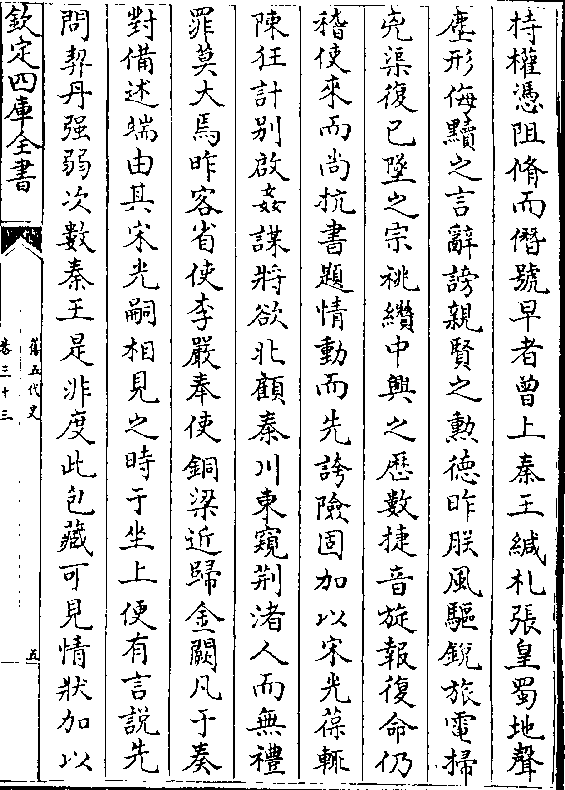 持權憑阻脩而僭號早者曾上秦王緘札張皇蜀地聲
塵形侮黷之言辭謗親賢之勲德昨朕風驅銳旅電掃
兇渠復已墜之宗祧纉中興之厯數捷音旋報復命仍
稽使來而尚抗書題情動而先誇險固加以宋光葆輒
陳狂計别啟姦謀將欲北顧秦川東窺荆渚人而無禮
罪莫大焉昨客省使李嚴奉使銅梁近歸金闕凡于奏
對備述端由其宋光嗣相見之時于坐上便有言説先
問契丹强弱次數秦王是非度此包藏可見情狀加以
欽定四庫全書
舊五代史
卷三十三
五